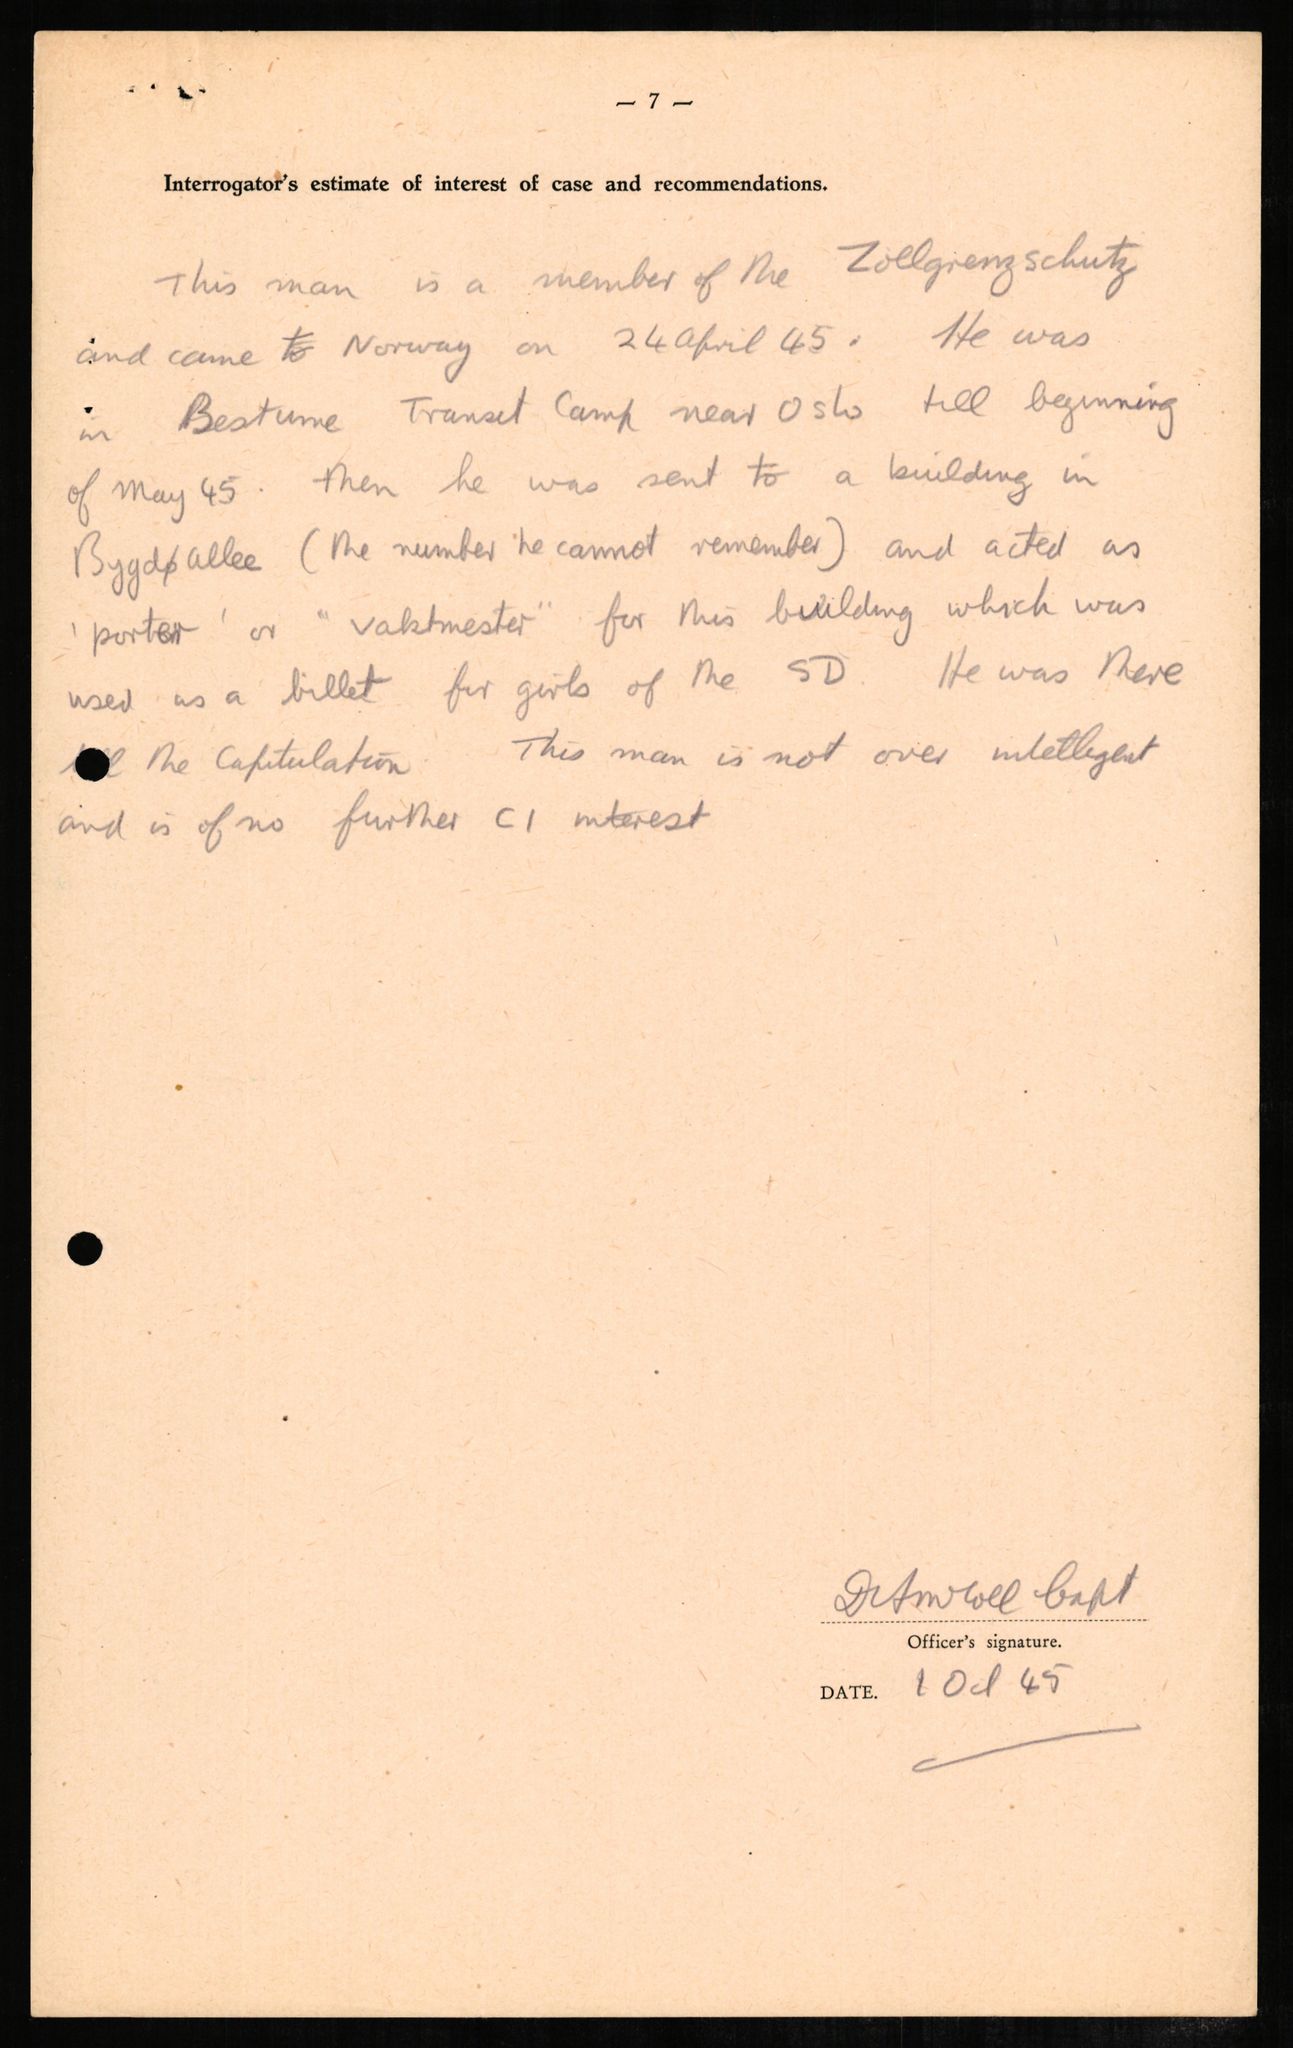 — 7 —
Interrogator's estimate of interest of case and recommendations.
This man is a member of the Zollgrenzschutz
and came to Norway on 24 April 45. He was
in Bestume Transit Camp near Oslo till beginning
of May 45. Then he was sent to a building in
Bygdø Allee (the number he cannot remember) and acted as
'porter' or "vaktmester" for this building which was
used as a billet for girls of the SD. He was there
till the Capitulation. This man is not over intelligent
and is of no further CI interest
Capt
Officer's signature.
DATE. 1 Oct 45